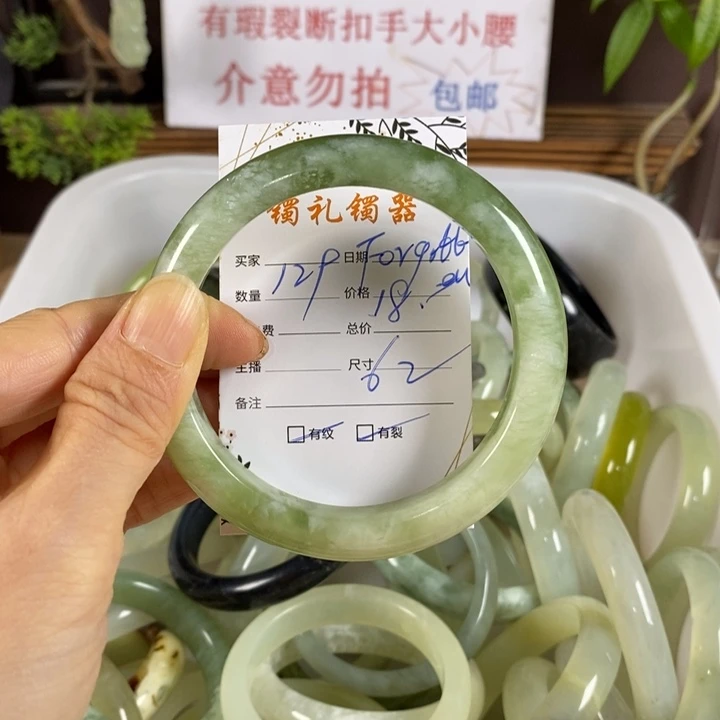 有瑕裂断扣手大小腰
介意勿拍 包邮
镯礼镯器
买家 129 日期
数量 价格 18.
费 总价
主播 尺寸 62
备注
有纹 有裂